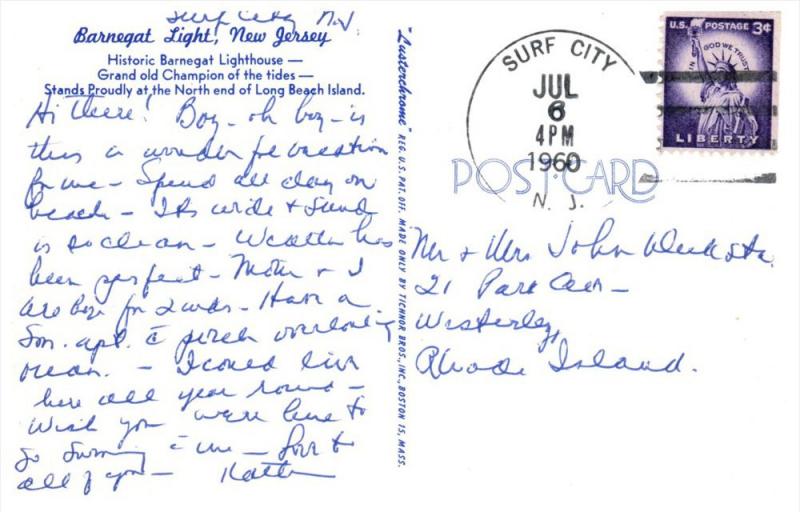 Surf City N.J.
Barnegat Light, New Jersey
Historic Barnegat Lighthouse —
Grand old Champion of the tides —
Stands Proudly at the North end of Long Beach Island.
Hi there! Boy - oh boy - is
this a wonderful vacation
for me - Spend all day on
beach - Its wide + sand
is so clean - Weather has
been perfect - Mother + I
are here for 2 wks - Have a
apt. c̄ porch overlooking
ocean. - I could live
here all year round -
Wish you were here to
go swimming c̄ me - Love to
all of you -
"Lusterchrome" REG. U.S. PAT. OFF. MADE ONLY BY TICHNOR BROS., INC., BOSTON 15, MASS.
SURF CITY
JUL
6
4 PM
1960
N. J.
U.S. POSTAGE 3¢
IN GOD WE TRUST
LIBERTY
POST CARD
Mr + Mrs John
21 Park Ave -
Westerly,
Rhode Island.